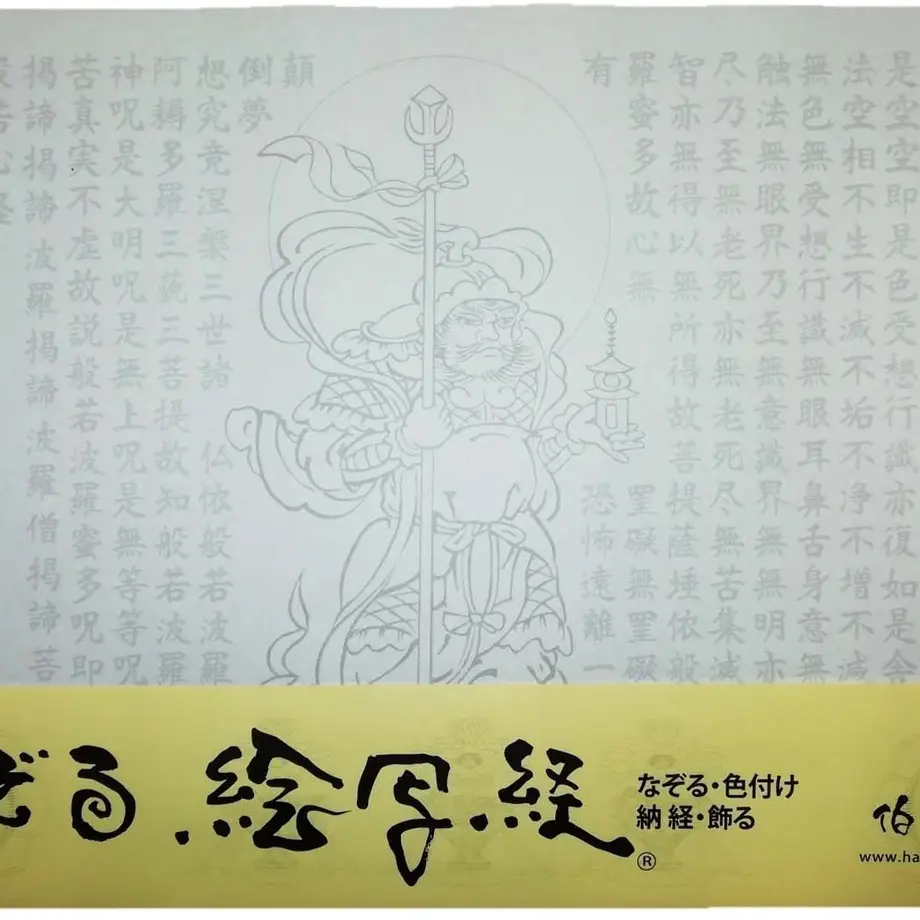 是空空即是色受想行識亦復如是舍
法空相不生不滅不垢不浄不増不減
無色無受想行識無眼耳鼻舌身意無
触法無眼界乃至無意識界無無明亦
尽乃至無老死亦無老死尽無苦集滅
智亦無得以無所得故菩提薩埵依般
羅蜜多故心無 罣礙無罣礙
有 恐怖遠離一
顛
倒夢
想究竟涅槃三世諸 仏依般若波羅
阿耨多羅三藐三菩提故知般若波羅
神呪是大明呪是無上呪是無等等呪
苦真実不虚故説般若波羅蜜多呪即
掲諦掲諦波羅掲諦波羅僧掲諦菩
般若心経
ぞる.絵写経®
なぞる・色付け
納経・飾る
伯
www.ha